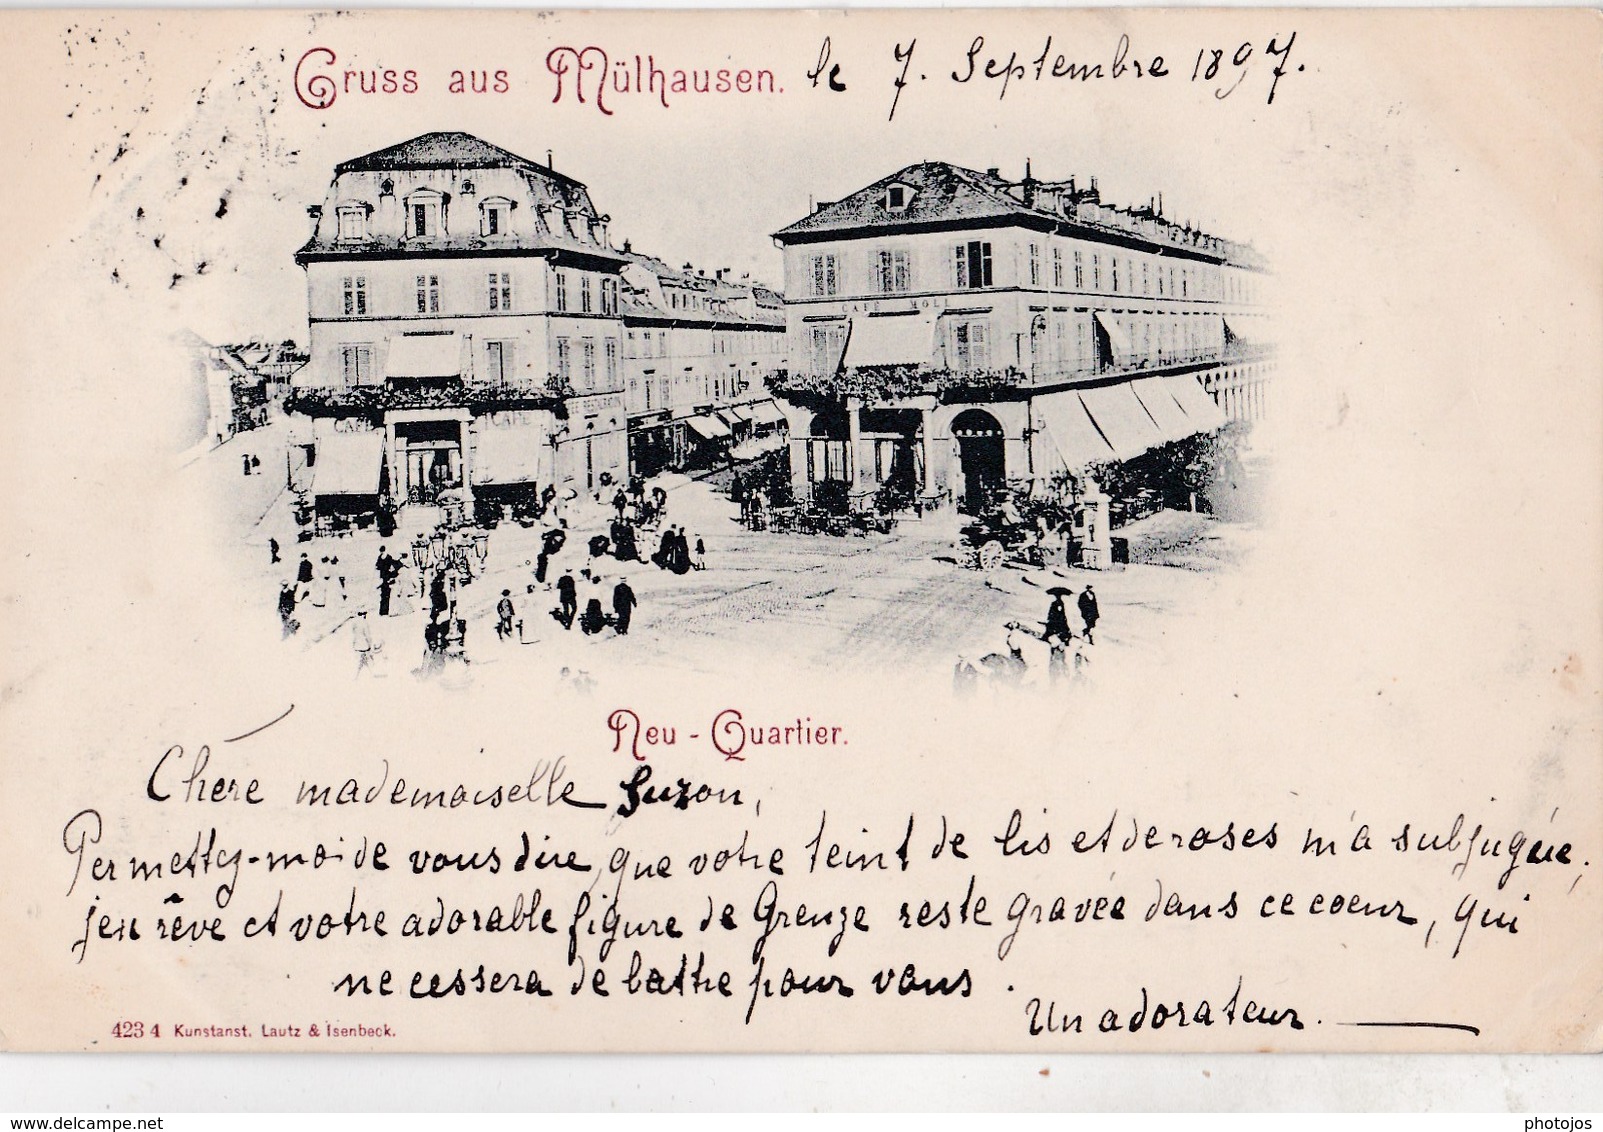 Gruss aus Mülhausen. le 7. Septembre 1897.
CAFÉ MOLL
CAFÉ CAFÉ
Neu-Quartier.
Chère mademoiselle Suzon,
Permettez-moi de vous dire, que votre teint de lis et de roses m'a subjuguée;
j'en rêve et votre adorable figure de Greuze reste gravée dans ce coeur, qui
ne cessera de battre pour vous.
Un adorateur.
423 4 Kunstanst. Lautz & Isenbeck.
www.delcampe.net
photojos